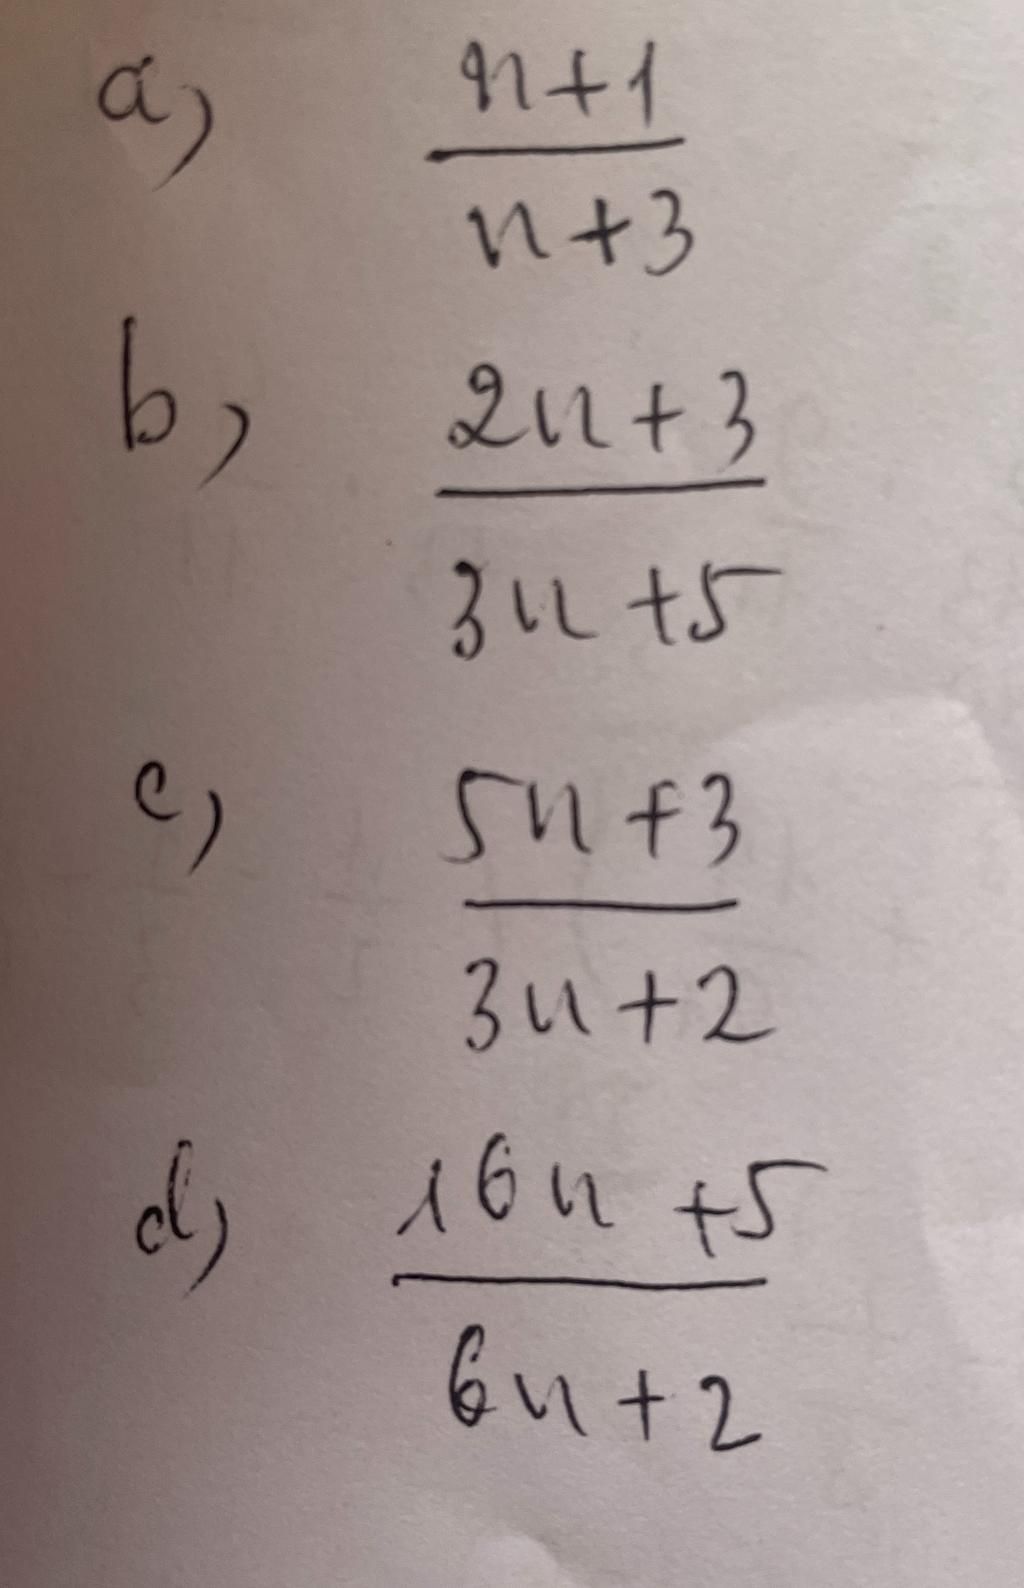 a, n+1
n+3
b, 2n+3
3n+5
c, 5n+3
3n+2
d, 16n+5
6n+2